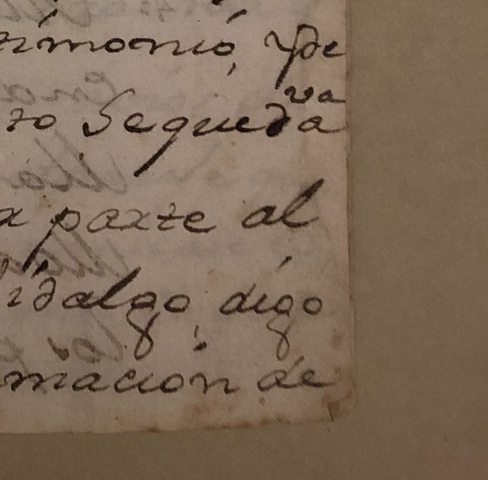 timonió, y de
to Sequeda va
a parte al
hidalgo, digo
macion de